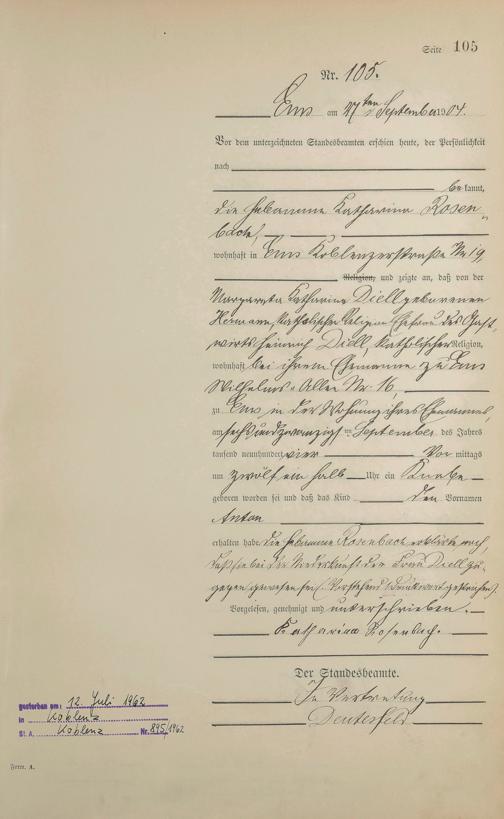 Seite 105
Nr. 105.
Ems am 27ten September 1904.
Vor dem unterzeichneten Standesbeamten erschien heute, der Persönlichkeit
nach
bekannt,
die Hebamme Katharina Rosen-
bach,
wohnhaft in Ems Koblenzerstraße Nr 19,
Religion, und zeigte an, daß von der
Margareta Katharina Diell geborenen
Hermann, katholischer Religion Ehefrau des Gast-
wirts Heinrich Diell, katholischer Religion,
wohnhaft bei ihrem Ehemanne zu Ems
Wilhelms-Allee Nr. 16,
zu Ems in der Wohnung ihres Ehemannes,
am sechsundzwanzigsten September des Jahres
tausend neunhundert vier Vor mittags
um zwölf ein halb Uhr ein Knabe
geboren worden sei und daß das Kind den Vornamen
Anton
erhalten habe. Die Hebamme Rosenbach erklärte noch,
daß sie bei der Niederkunft der Frau Diell zu-
gegen gewesen sei. (Vorstehend 1 Druckwort gestrichen).
Vorgelesen, genehmigt und unterschrieben.
Katharina Rosenbach.
Der Standesbeamte.
In Vertretung
gestorben am: 12. Juli 1962
in Koblenz
St. A. Koblenz Nr. 895/1962
Form. A.